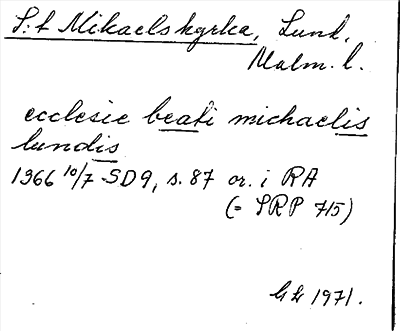 S:t Mikaelskyrka, Lund,
Malm. l.
ecclesie beati michaelis
lundis
1366 10/7 SD9, s. 87 or. i RA
(= SRP 715)
1971.